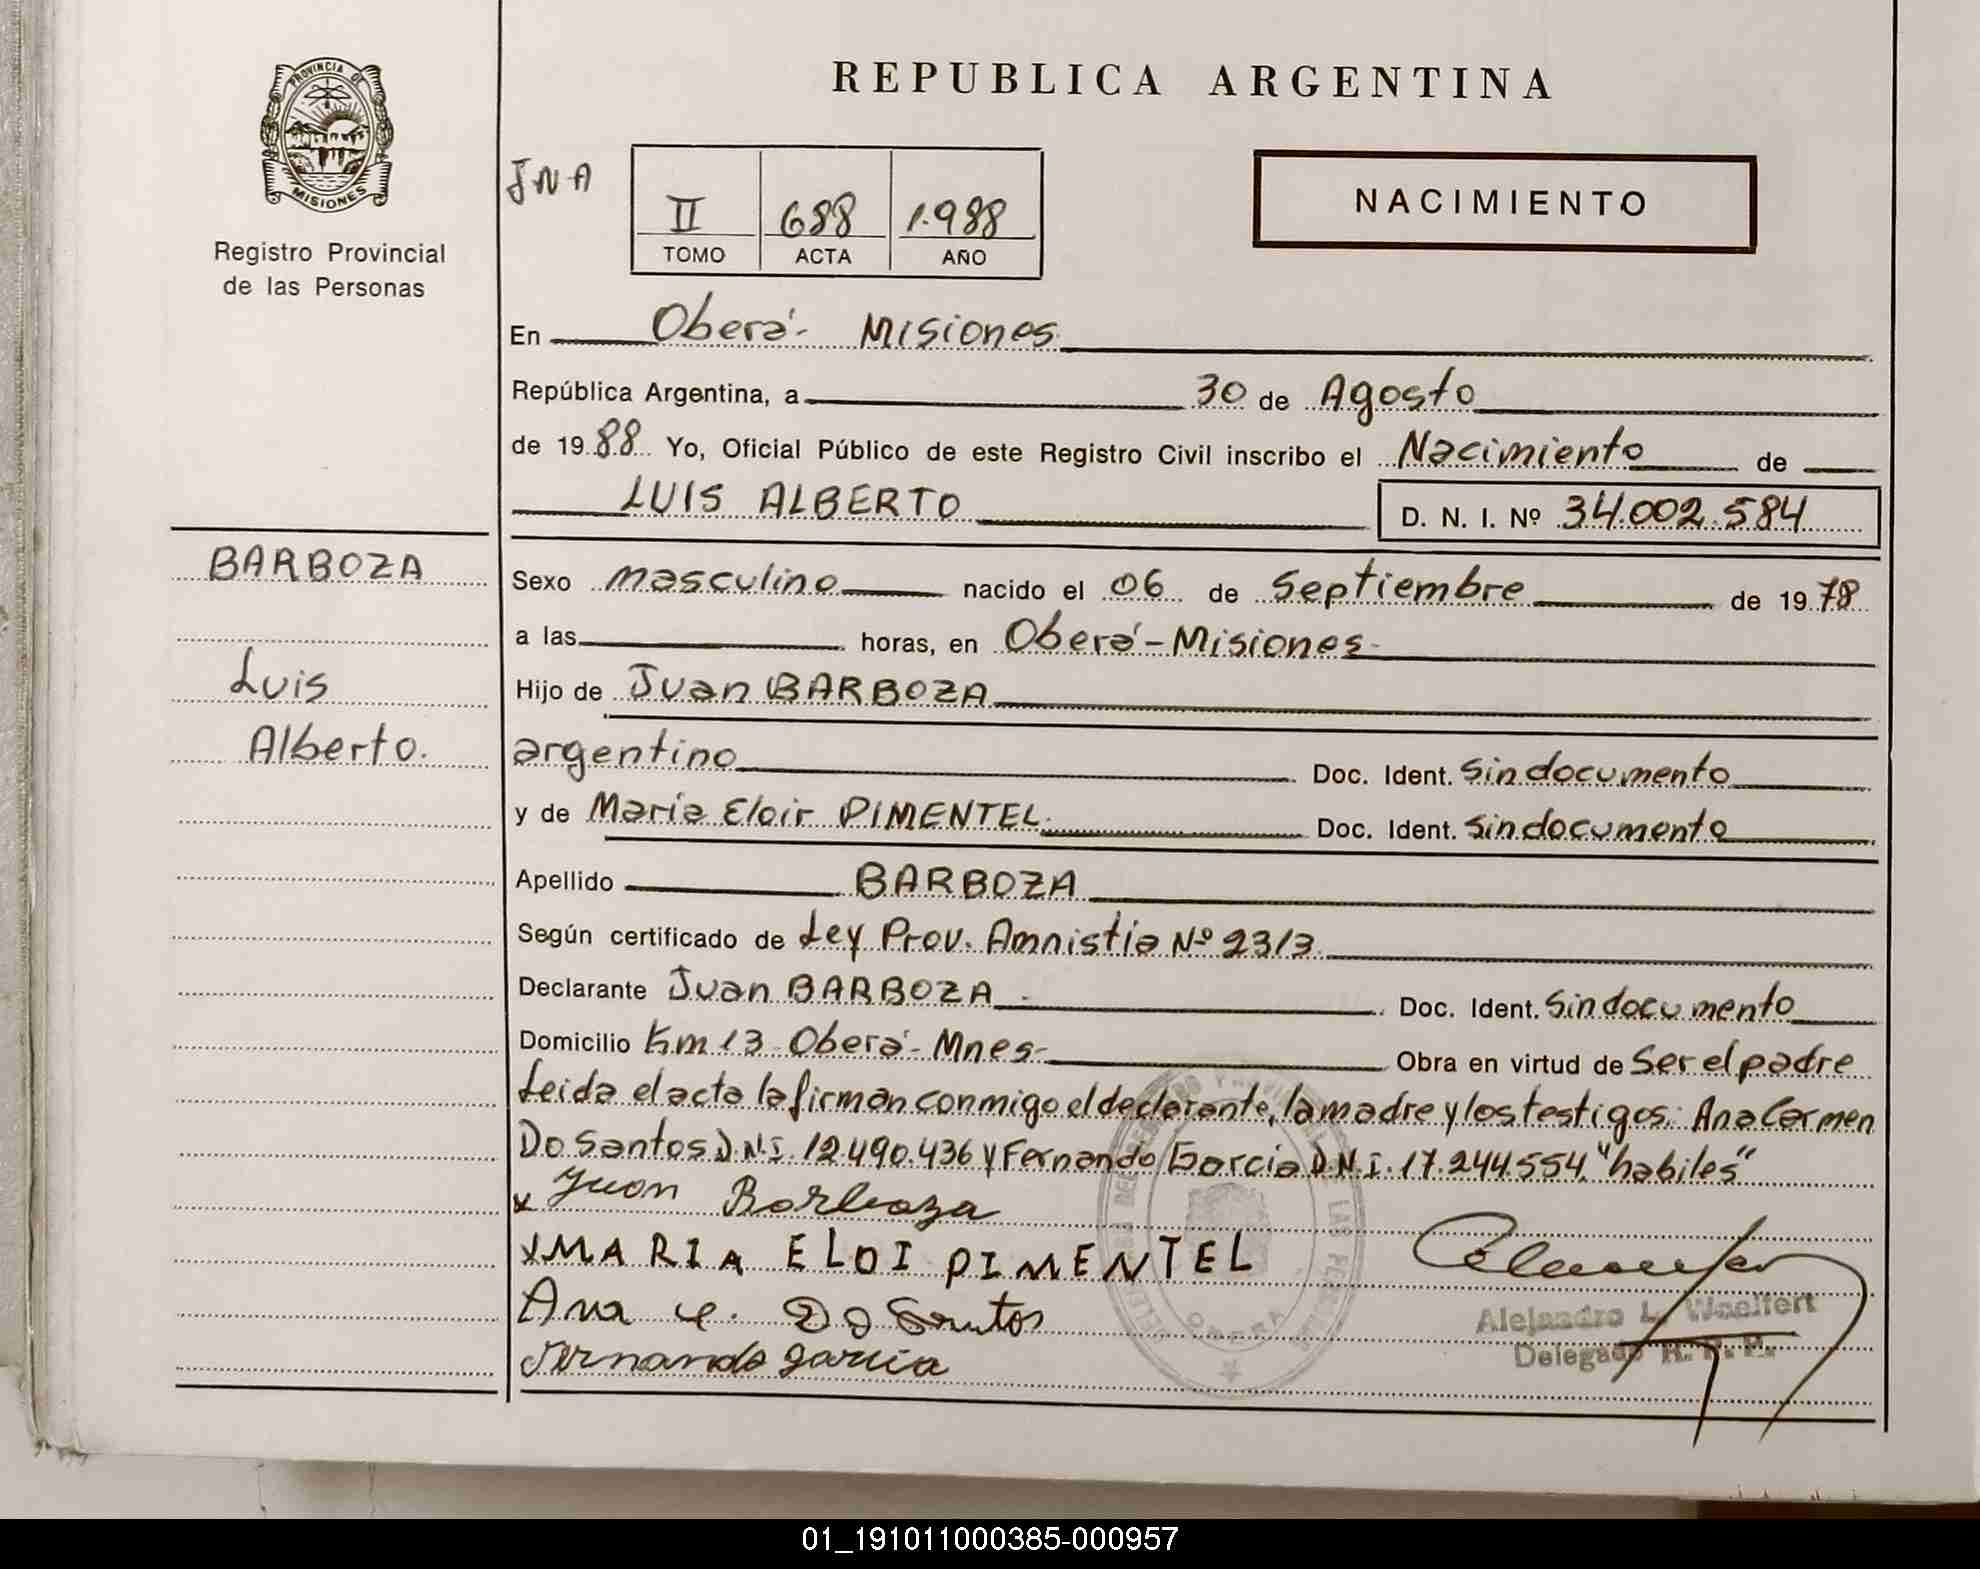 PROVINCIA DE
MISIONES
Registro Provincial
de las Personas
REPUBLICA ARGENTINA
JNA
II 688 1.988
TOMO ACTA AÑO
NACIMIENTO
En Oberá- Misiones
República Argentina, a 30 de Agosto
de 1988 Yo, Oficial Público de este Registro Civil inscribo el Nacimiento de
LUIS ALBERTO D. N. I. Nº 34.002.584
BARBOZA
Luis
Alberto.
Sexo masculino nacido el 06 de Septiembre de 1978
a las horas, en Oberá-Misiones-
Hijo de Juan BARBOZA
argentino Doc. Ident. Sin documento
y de Maria Eloir PIMENTEL Doc. Ident. Sin documento
Apellido BARBOZA
Según certificado de Ley Prov. Amnistia Nº 2313
Declarante Juan BARBOZA Doc. Ident. Sin documento
Domicilio Km 13 Oberá- Mnes- Obra en virtud de Ser el padre
Leida el acta la firman conmigo el declarante, la madre y los testigos: Ana Carmen
Do Santos D.N.I. 12.490.436 y Fernando Garcia D.N.I. 17.244.554 "habiles"
x Juan Barboza
x MARIA ELOI PIMENTEL
Ana C. Do Santos
Fernando Garcia
OBERA
Alejandro L. Woelfert
Delegado R. P. P.
01_191011000385-000957